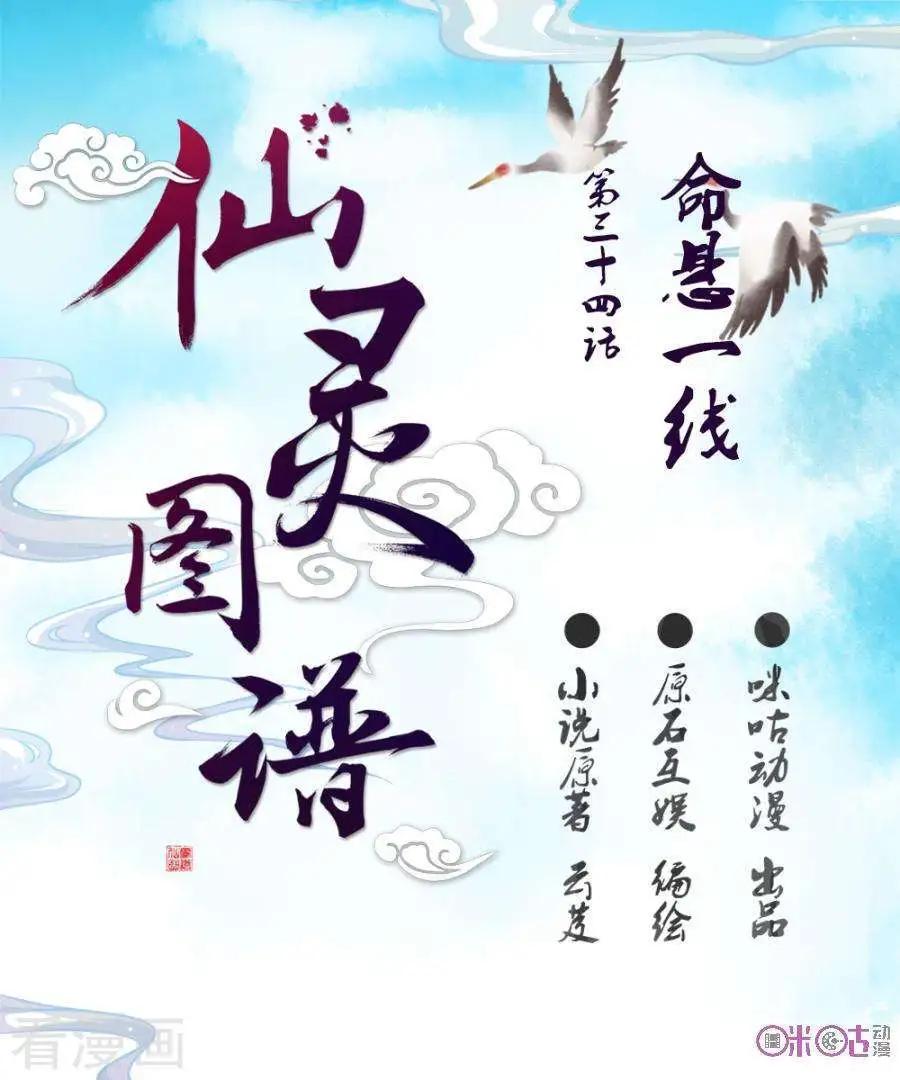 仙灵图谱
命悬一线
第三十四话
咪咕动漫 出品
原石互娱 编绘
小说原著 云芨
看漫画
咪咕动漫